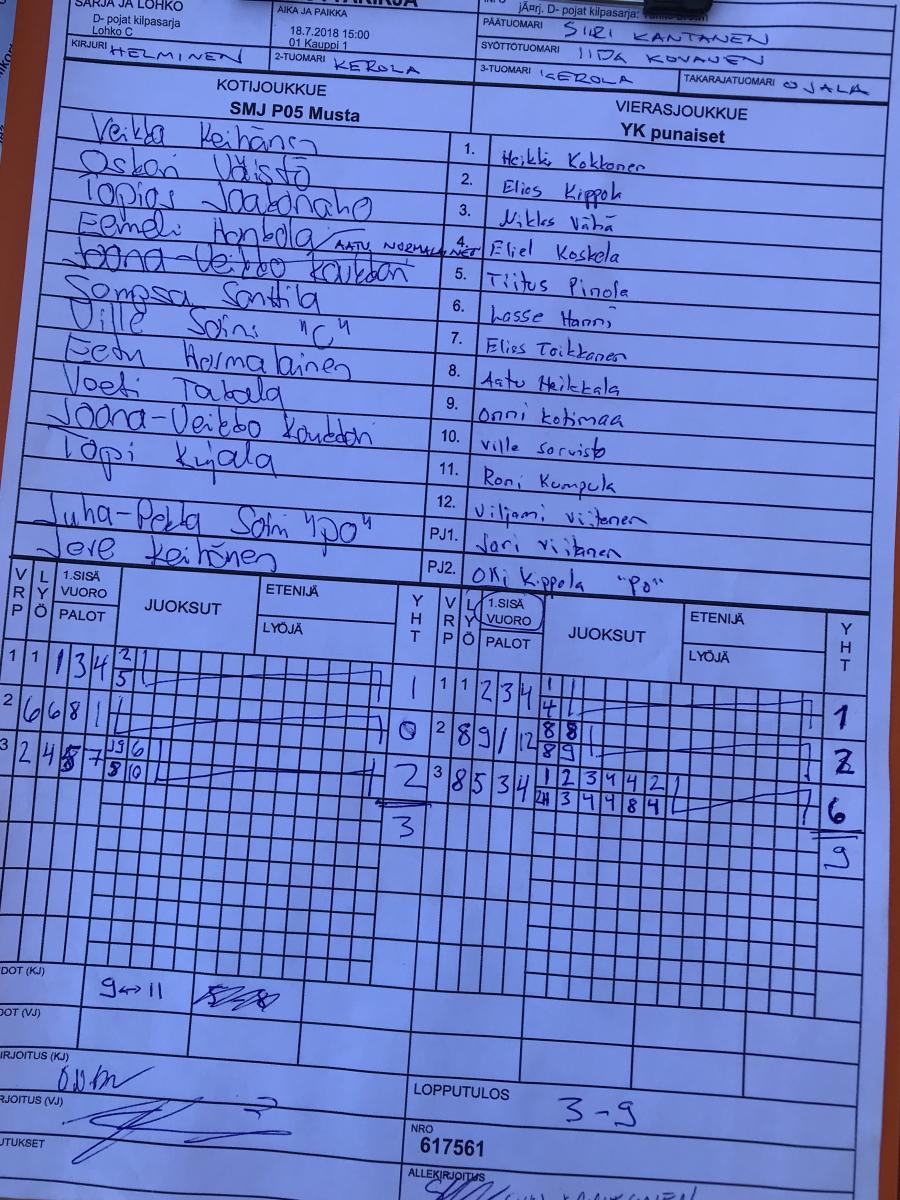 SARJA JA LOHKO
D- pojat kilpasarja
Lohko C
AIKA JA PAIKKA
18.7.2018 15:00
01 Kauppi 1
D- pojat kilpasarja:
PÄÄTUOMARI SIIRI KANTANEN
SYÖTTÖTUOMARI IIDA KOVANEN
KIRJURI HELMINEN
2-TUOMARI KEROLA
3-TUOMARI KEROLA
TAKARAJATUOMARI OJALA
KOTIJOUKKUE
SMJ P05 Musta
VIERASJOUKKUE
YK punaiset
Veikka Keihänen 1. Heikki Kokkonen
Oskari Väistö 2. Elias Kippola
Topias Jaakonaho 3. Niklas Vähä
Eemeli Honkola / AATU NORMALAINEN 4. Eliel Koskela
Joona-Veikko Koukkari 5. Tiitus Pinola
Sampsa Santtila 6. Lasse Hanni
Ville Soini "C" 7. Elias Toikkanen
Eetu Harmalainen 8. Aatu Heikkala
Veeti Takala 9. Onni Kotimaa
Joona-Veikko Koukkari 10. Ville Sarvisto
Topi Kujala 11. Roni Kumpula
12. Viljami Viitanen
Juha-Pekka Soini "PO" PJ1. Jari Viitanen
Jere Keihänen PJ2. Oki Kippola "PO"
VRP LYÖ 1.SISÄ VUORO PALOT JUOKSUT ETENIJÄ LYÖJÄ YHT VRP LYÖ 1.SISÄ VUORO PALOT JUOKSUT ETENIJÄ LYÖJÄ YHT
1 1 1 3 4 2 1 1 1 2 3 4 1 1
5 4
2 6 6 8 1 0 2 8 9 1 12 8 8 2
8 9
3 2 4 7 6 2 3 8 5 3 4 1 2 3 4 4 2 6
8 10 3 4 4 8 4
3 9
DOT (KJ) 9↔11
DOT (VJ)
IRJOITUS (KJ)
RJOITUS (VJ)
LOPPUTULOS 3-9
UTUKSET
NRO
617561
ALLEKIRJOITUS